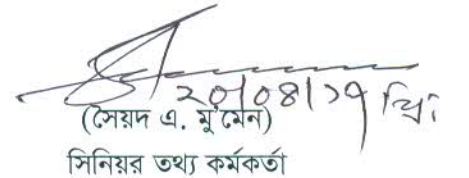 ২০/০৪/১৭ খ্রিঃ
(সৈয়দ এ. মু'মেন)
সিনিয়র তথ্য কর্মকর্তা